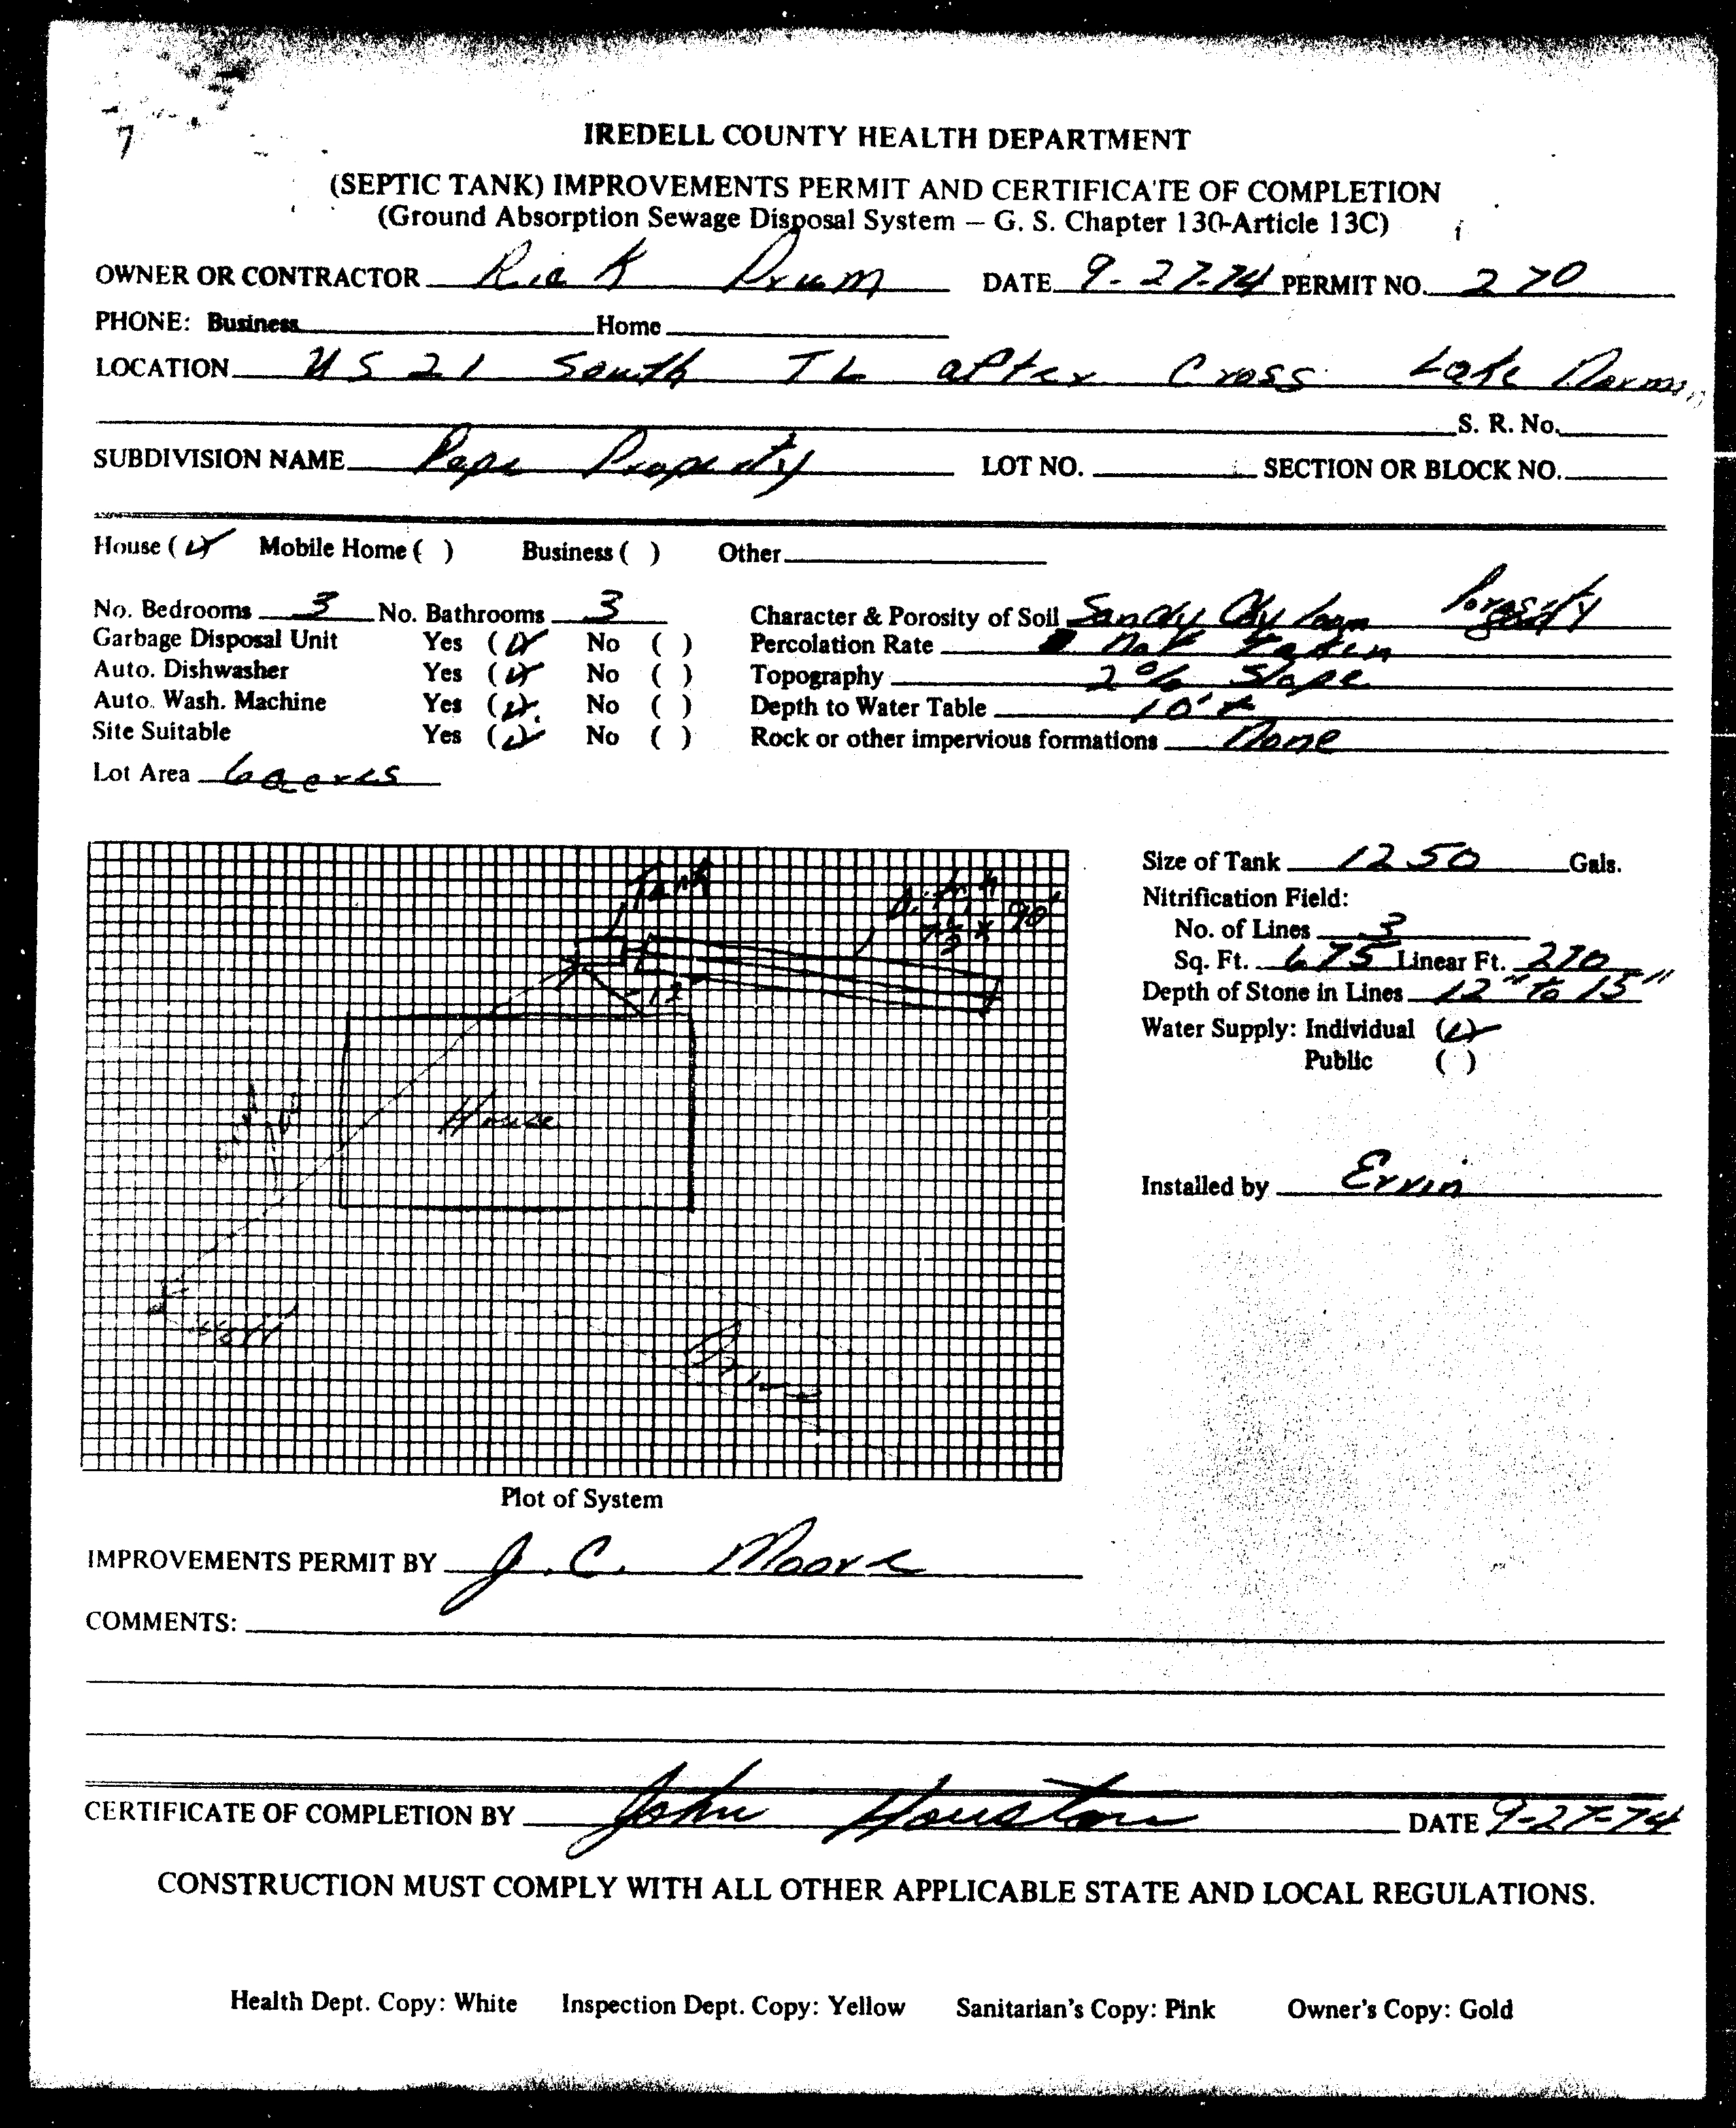 7
IREDELL COUNTY HEALTH DEPARTMENT
(SEPTIC TANK) IMPROVEMENTS PERMIT AND CERTIFICATE OF COMPLETION
(Ground Absorption Sewage Disposal System — G. S. Chapter 130-Article 13C)
OWNER OR CONTRACTOR Rick Drum DATE 9-27-74 PERMIT NO. 270
PHONE: Business Home
LOCATION US 21 South TL after Cross Lake Norman
S. R. No.
SUBDIVISION NAME Pope Property LOT NO. SECTION OR BLOCK NO.
House (✓) Mobile Home ( ) Business ( ) Other
No. Bedrooms 3 No. Bathrooms 3 Character & Porosity of Soil Sandy Clay loam Porosity
Garbage Disposal Unit Yes (✓) No ( ) Percolation Rate Not Taken
Auto. Dishwasher Yes (✓) No ( ) Topography 2% Slope
Auto. Wash. Machine Yes (✓) No ( ) Depth to Water Table 10'+
Site Suitable Yes (✓) No ( ) Rock or other impervious formations None
Lot Area 6 acres
Tank
90'
12'
House
Size of Tank 1250 Gals.
Nitrification Field:
No. of Lines 3
Sq. Ft. 675 Linear Ft. 270
Depth of Stone in Lines 12" to 15"
Water Supply: Individual (✓)
Public ( )
Installed by Ervin
Plot of System
IMPROVEMENTS PERMIT BY J. C. Moore
COMMENTS:
CERTIFICATE OF COMPLETION BY John Houston DATE 9-27-74
CONSTRUCTION MUST COMPLY WITH ALL OTHER APPLICABLE STATE AND LOCAL REGULATIONS.
Health Dept. Copy: White Inspection Dept. Copy: Yellow Sanitarian's Copy: Pink Owner's Copy: Gold